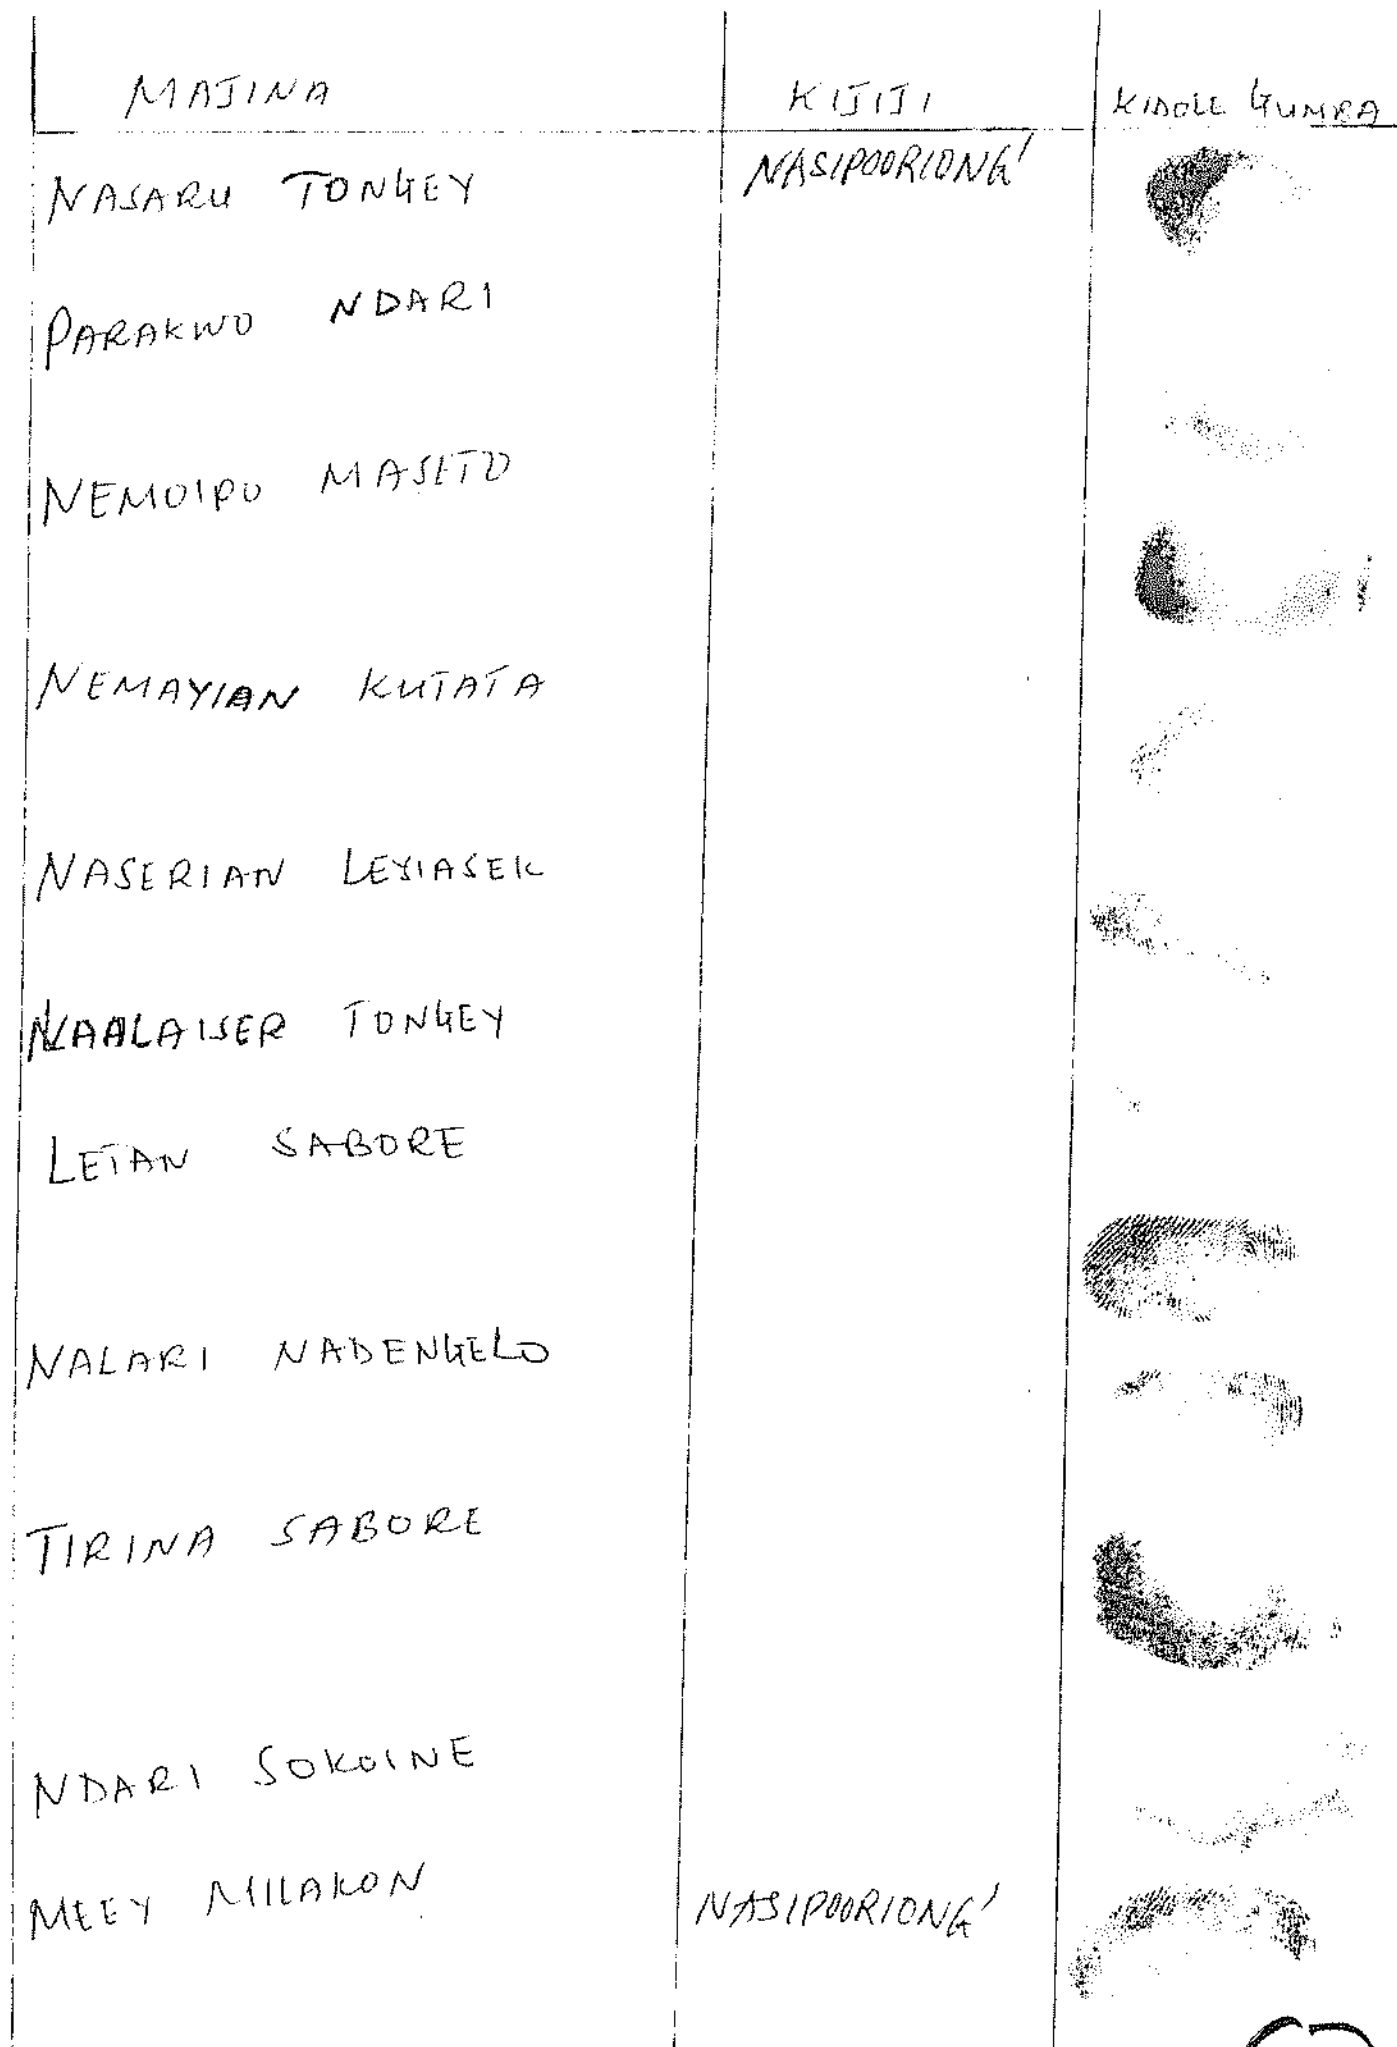 MAJINA KIJIJI KIDOLE GUMBA
NASARU TONGEY NASIPOORIONG'
PARAKWO NDARI
NEMOIPO MASETO
NEMAYIAN KUTATA
NASERIAN LEYIASEK
NAALAISER TONGEY
LETAN SABORE
NALARI NADENGELO
TIRINA SABORE
NDARI SOKOINE
MEEY MILAKON NASIPOORIONG'